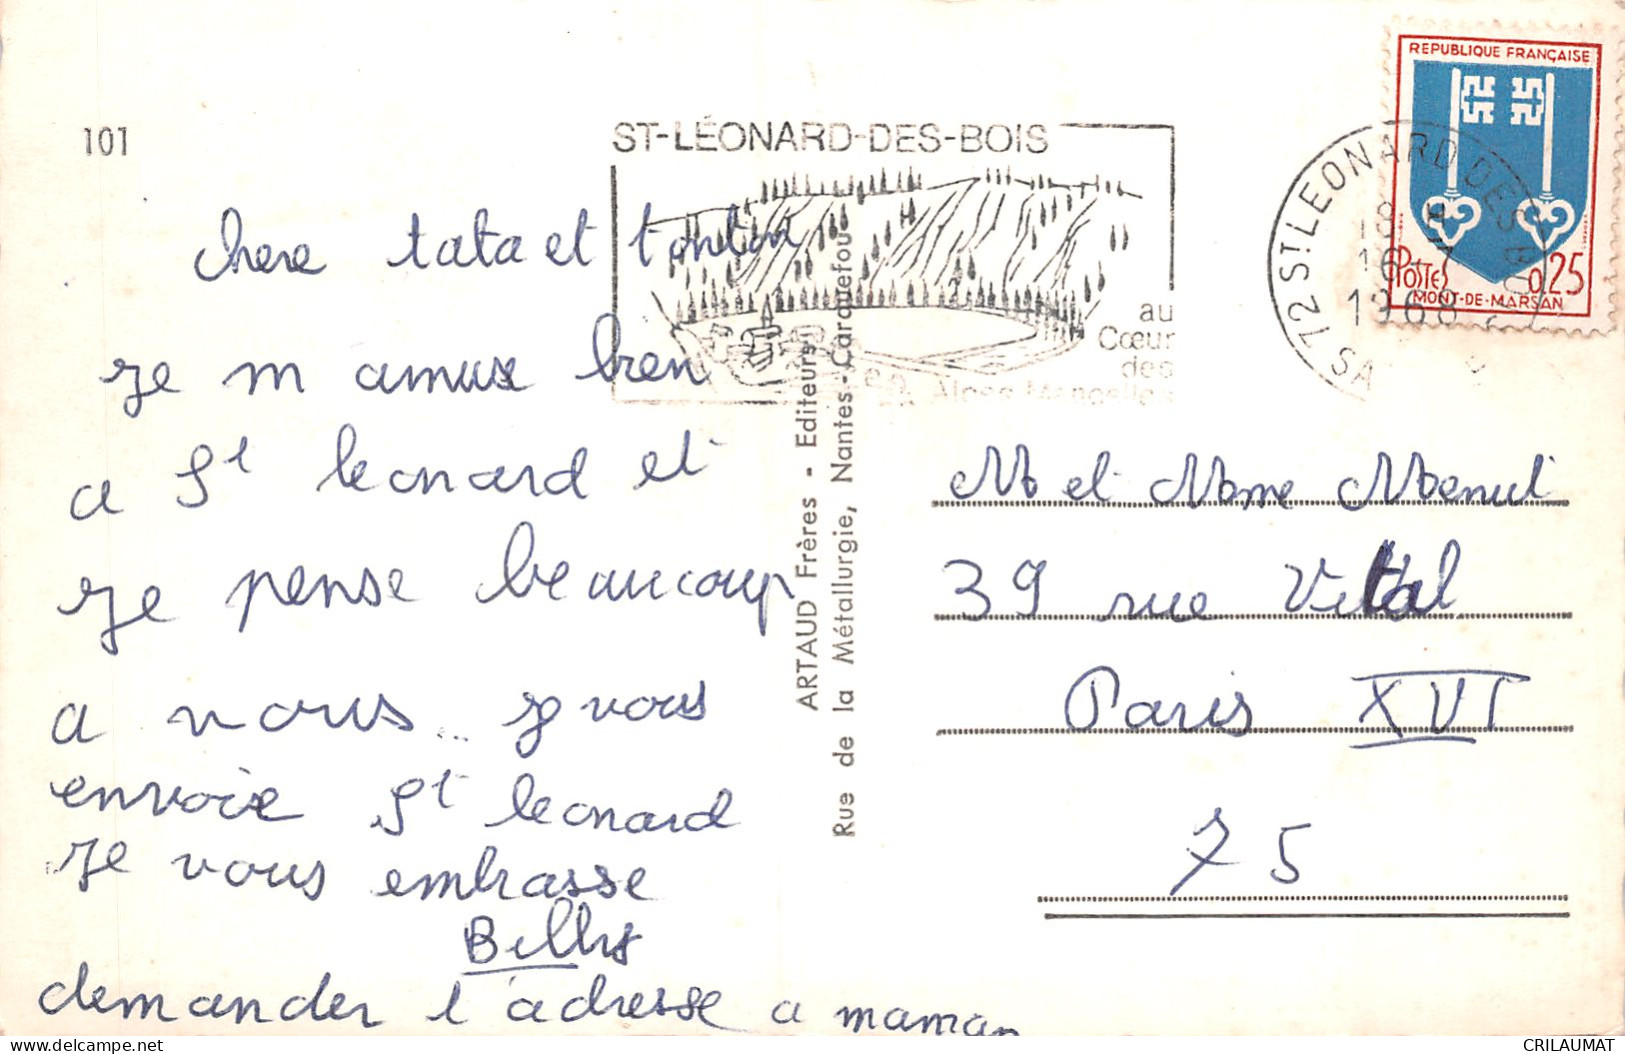 101
ST-LÉONARD-DES-BOIS
au
Cœur
des
Alpes Mancelles
REPUBLIQUE FRANÇAISE
POSTES
0,25
MONT-DE-MARSAN
72 ST LEONARD DES BOIS
16-7
1968
SA
chere tata et tonton
je m amuse bien
a St leonard et
je pense beaucoup
a vous je vous
envoie St leonard
je vous embrasse
Billy
demander l adresse a maman
ARTAUD Frères - Editeurs
Rue de la Métallurgie, Nantes-Carquefou
M et Mme Menut
39 rue Vital
Paris XVI
75
CRILAUMAT